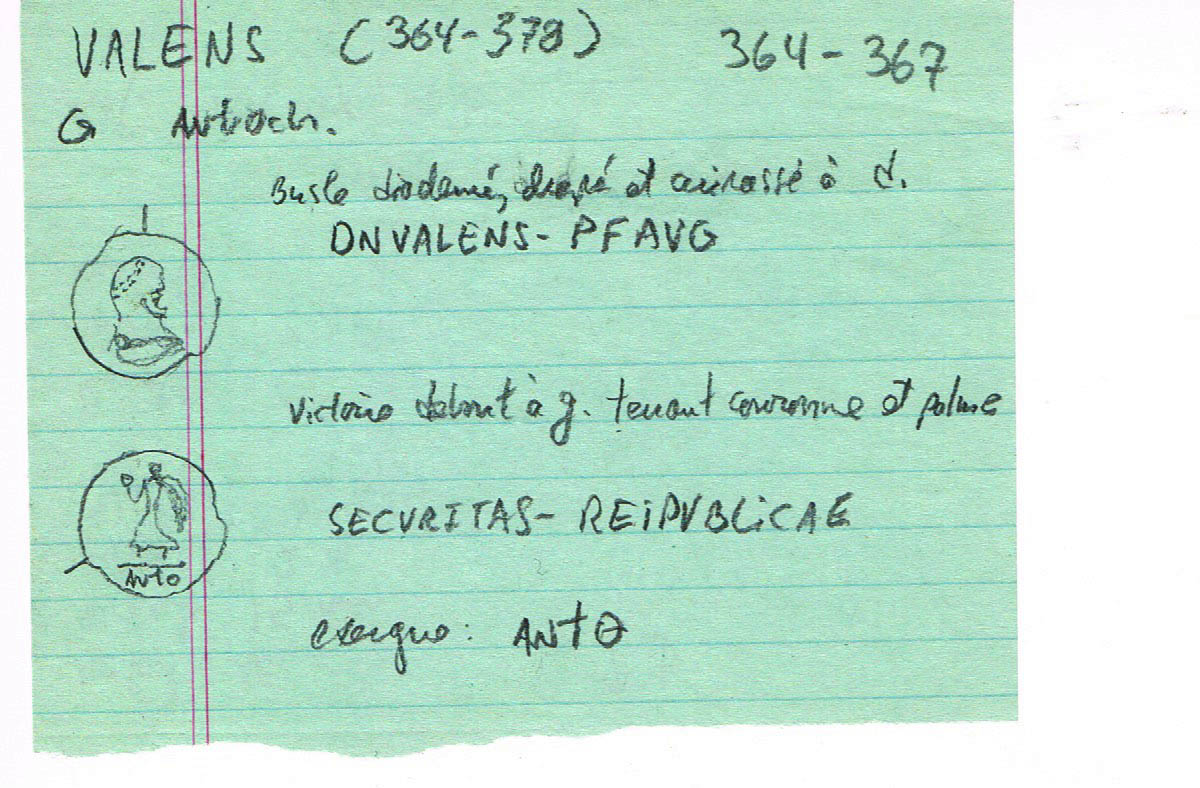 VALENS (364-378) 364-367
G Antioch.
Buste diademé, drapé et cuirassé à d.
DNVALENS-PFAVG
Victoire debout à g. tenant couronne et palme
SECVRITAS-REiPVBLiCAE
ANtΘ
exergue: ANtΘ